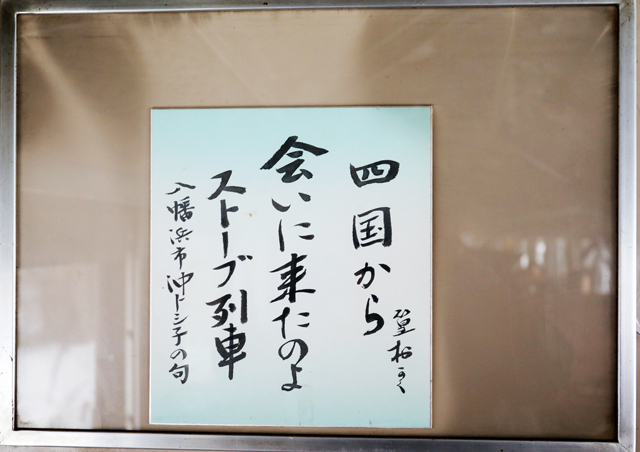 四国から
会いに来たのよ
ストーブ列車
八幡浜市沖トシ子の句